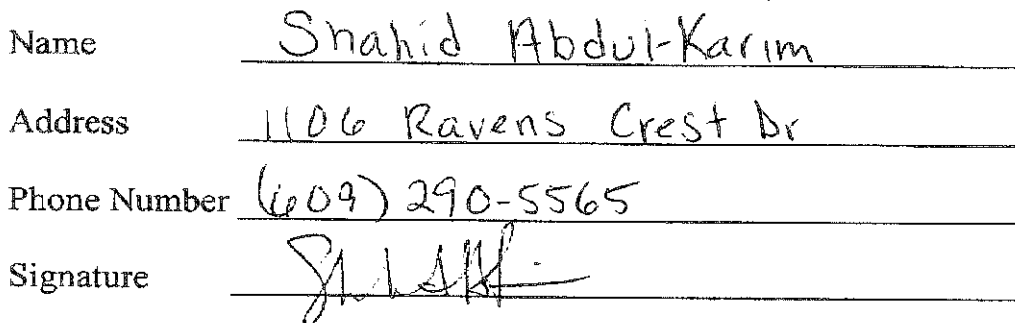 Name Shahid Abdul-Karim
Address 1106 Ravens Crest Dr
Phone Number (609) 290-5565
Signature